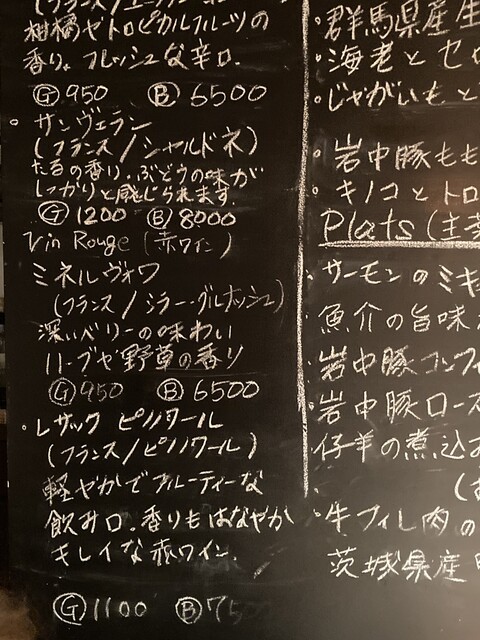 柑橘やトロピカルフルーツの
香り。フレッシュな辛口.
Ⓖ950 Ⓑ6500
・サンヴェラン
(フランス/シャルドネ)
たるの香り.ぶどうの味が
しっかりと感じられます.
Ⓖ1200 Ⓑ8000
Vin Rouge (赤ワイン)
ミネルヴォワ
(フランス/シラー・グルナッシュ)
深いベリーの味わい
ハーブや野草の香り
Ⓖ950 Ⓑ6500
・レザック ピノノワール
(フランス/ピノノワール)
軽やかでフルーティーな
飲み口.香りもはなやか
キレイな赤ワイン.
Ⓖ1100 Ⓑ7500
・群馬県産生
・海老とセロ
・じゃがいもと
・岩中豚もも
・キノコとトロ
Plats (主菜
・サーモンのミキ
・魚介の旨味
・岩中豚コンフィ
・岩中豚ロース
・仔羊の煮込み
・牛フィレ肉の
茨城県産